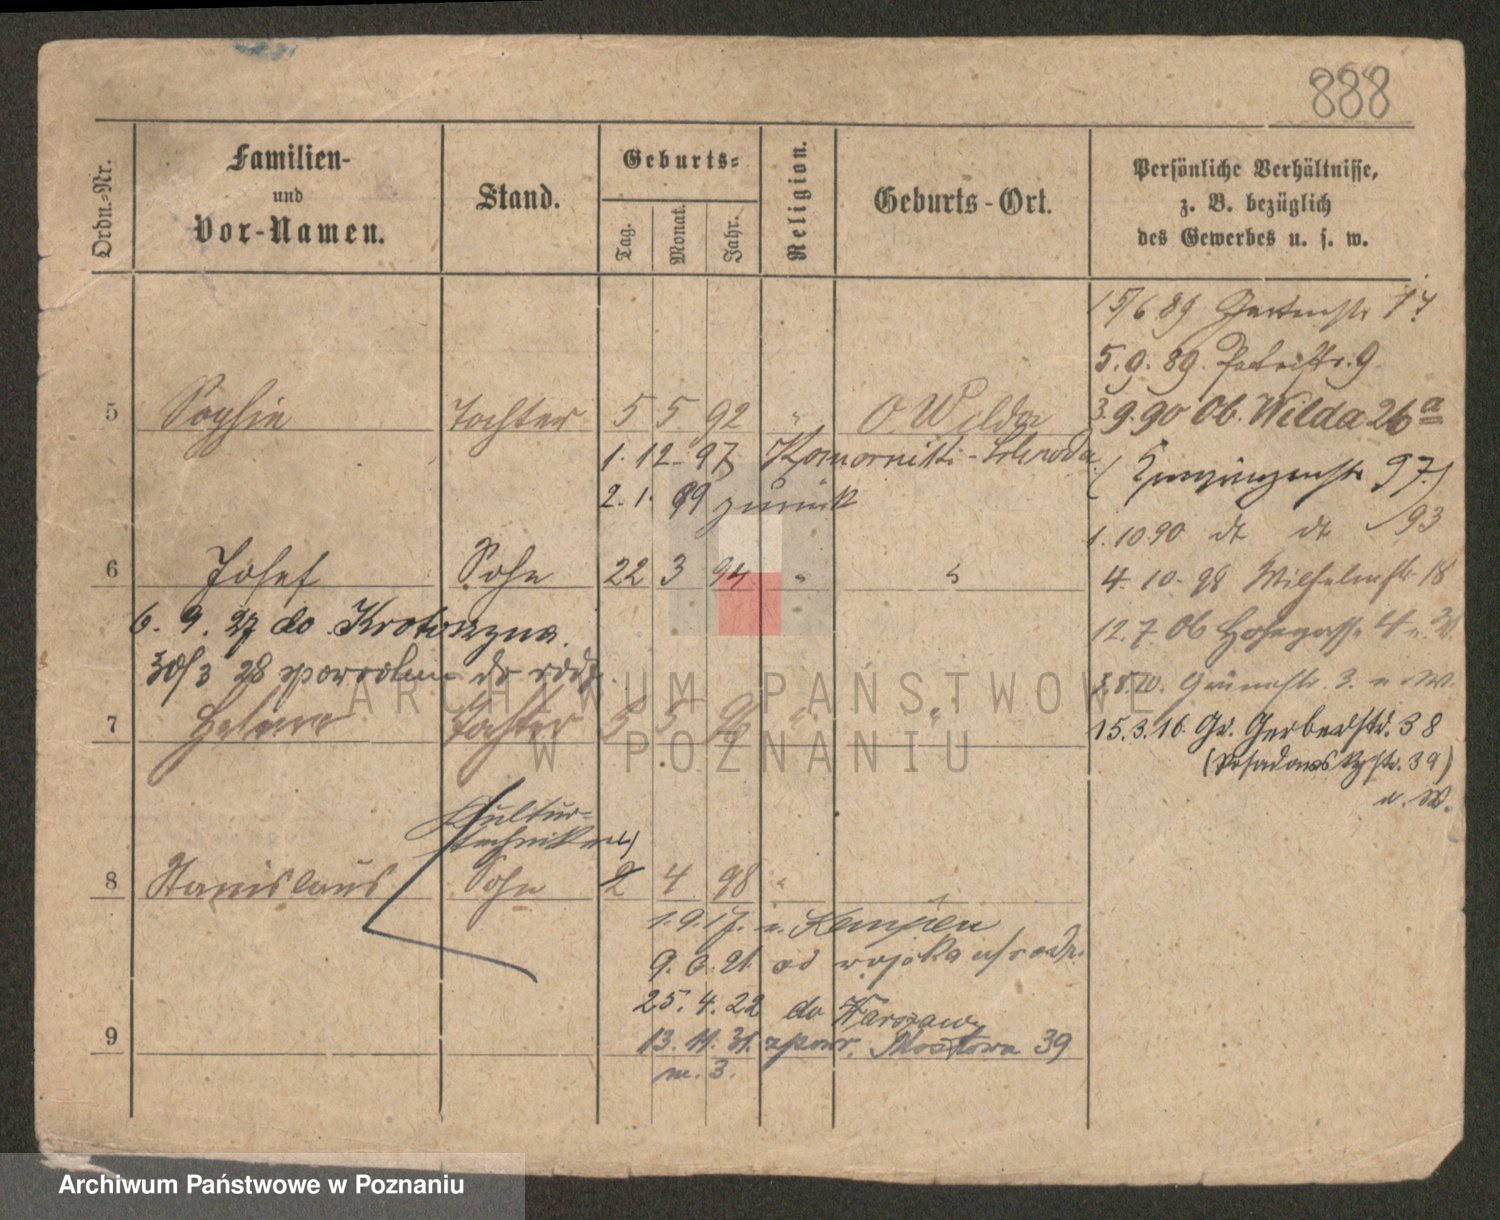 888
Ordn.-Nr.
Familien-
und
Vor-Namen.
Stand.
Geburts-
Tag.
Monat.
Jahr.
Religion.
Geburts-Ort.
Persönliche Verhältnisse,
z. B. bezüglich
des Gewerbes u. s. w.
15/6 89 Gartenstr 17
5.9.89.
3.9.90 Ob. Wilda 26a
5 Sophie Tochter 5 5 92 " O. Wilda
1. 12. 97 Komornik
2. 1. 99 zurück
(Kronprinzenstr 97)
1.10.90 dt dt 93
6 Josef Sohn 22 3 94 " "
4. 10. 98 Wilhelmstr. 18
6. 9. 27 do Krotoszyna.
12. 7. 06 Hohegasse 4 u. W.
30/3 28 do
Grünestr. 3. u. W.
7 Helene Tochter 5 5 96 " "
15.3.16. Gr. Gerberstr. 38
(Posadowskystr. 39)
u. W.
Kultur-
techniker)
8 Stanislaus Sohn 2 4 98 "
1.9.17. n. Kempen
9. 6. 21. od wojska
25. 4. 22 do Warszawy
9 13. 11. 31. zpowr. Mostowa 39
m. 3.
ARCHIWUM PAŃSTWOWE
W POZNANIU
Archiwum Państwowe w Poznaniu